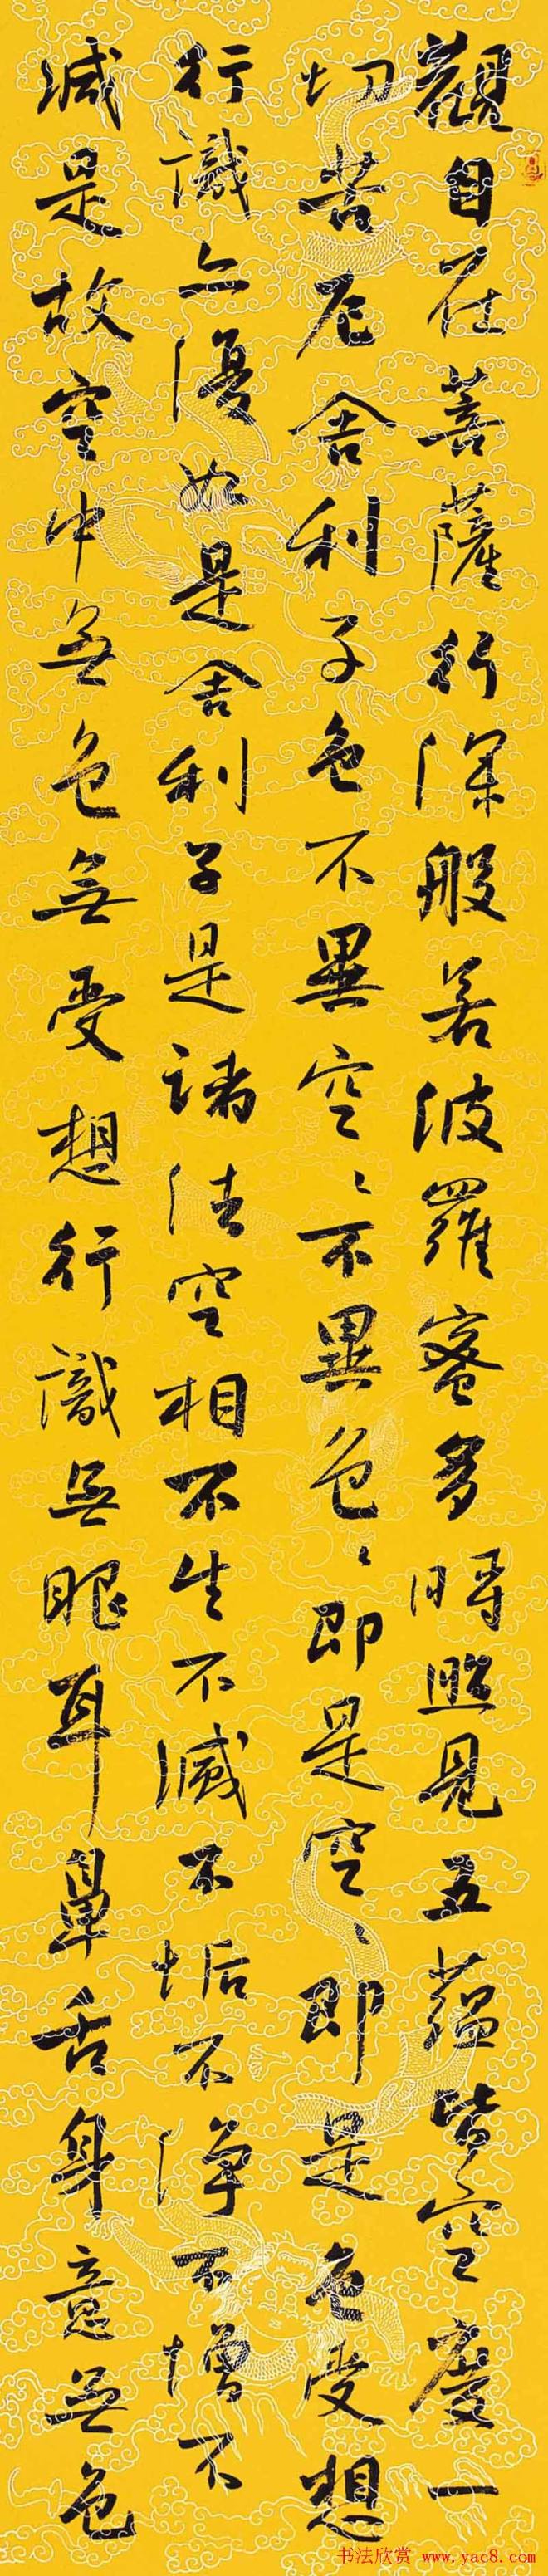 觀自在菩薩行深般若波羅蜜多時照見五蘊皆空度一
切苦厄舍利子色不異空〻不異色〻即是空〻即是色受想
行識亦復如是舍利子是諸法空相不生不滅不垢不淨不增不
減是故空中無色無受想行識無眼耳鼻舌身意無色
书法欣赏 www.yac8.com